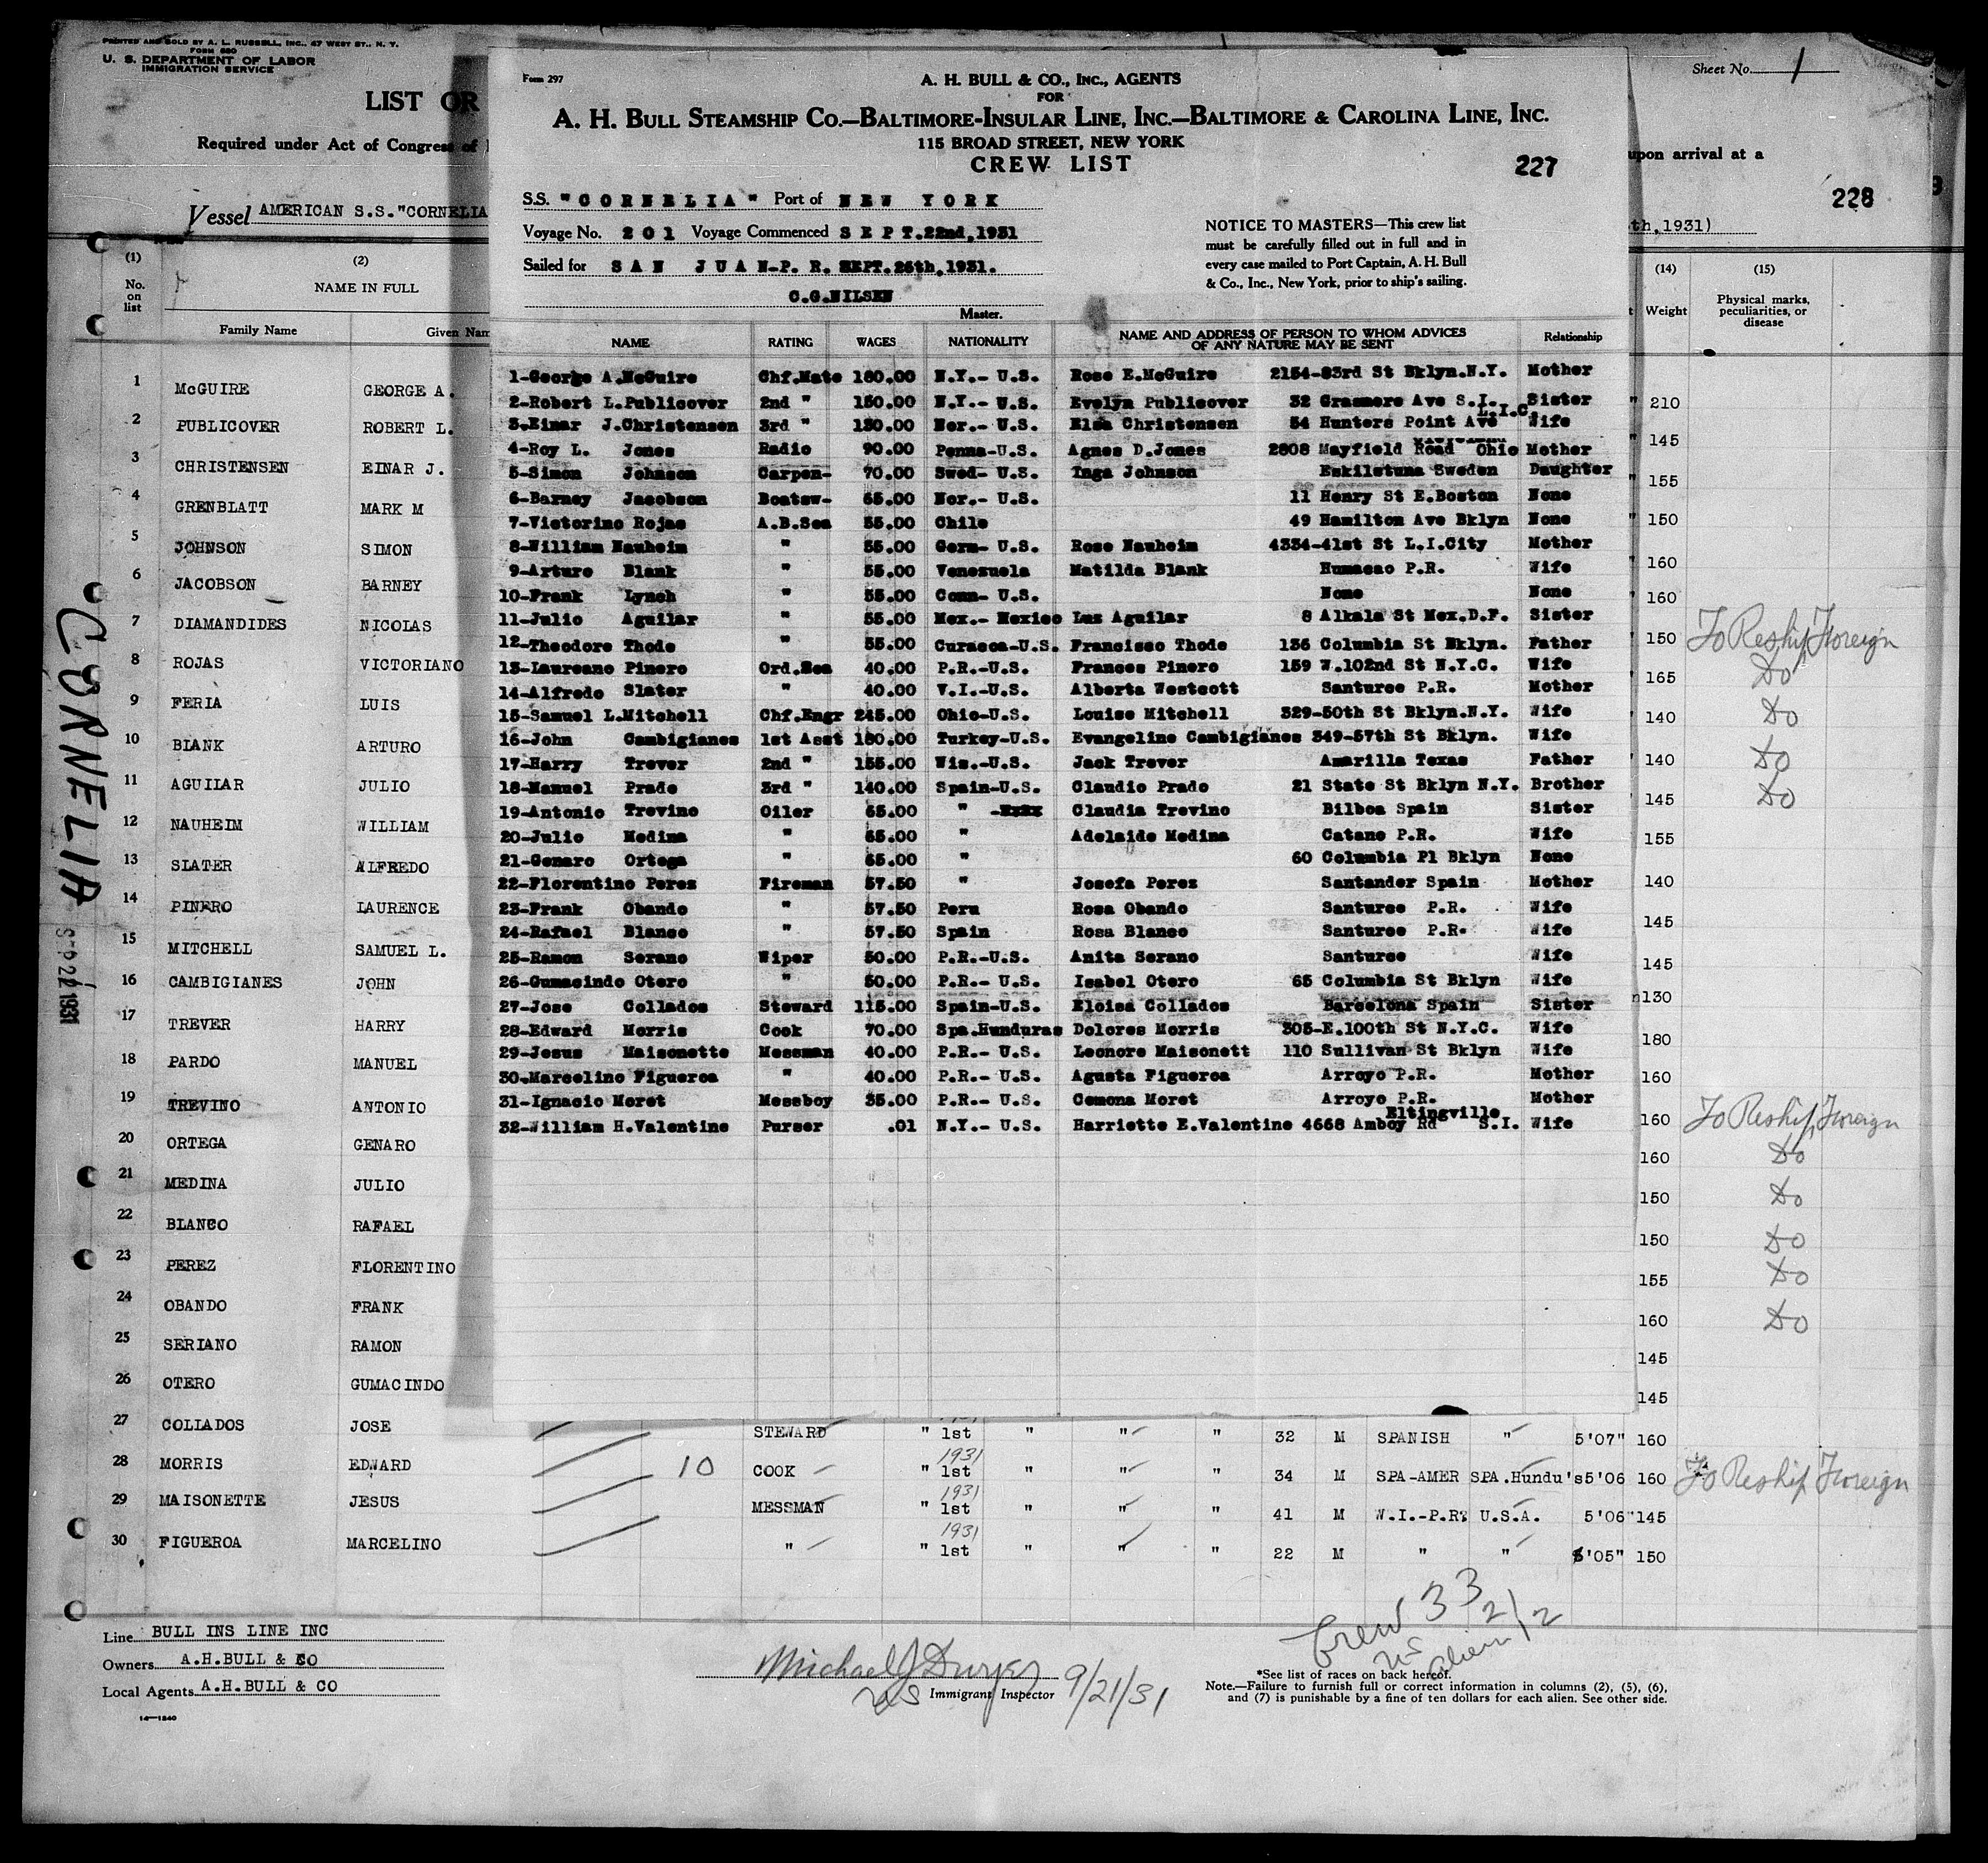 PRINTED AND SOLD BY A. L. RUSSELL, INC., 47 WEST ST., N. Y.
FORM 680
U. S. DEPARTMENT OF LABOR
IMMIGRATION SERVICE
LIST OR
Required under Act of Congress of
Vessel AMERICAN S.S."CORNELIA
Sheet No. 1
upon arrival at a
228
th,1931)
Form 297
A. H. BULL & CO., INC., AGENTS
FOR
A. H. BULL STEAMSHIP CO.—BALTIMORE-INSULAR LINE, INC.—BALTIMORE & CAROLINA LINE, INC.
115 BROAD STREET, NEW YORK
CREW LIST
227
S.S. "CORNELIA" Port of NEW YORK
Voyage No. 201 Voyage Commenced SEPT.22nd,1931
Sailed for SAN JUAN-P. R. SEPT.26th,1931.
C.G.NILSEN
Master.
NOTICE TO MASTERS—This crew list
must be carefully filled out in full and in
every case mailed to Port Captain, A. H. Bull
& Co., Inc., New York, prior to ship's sailing.
NAME RATING WAGES NATIONALITY NAME AND ADDRESS OF PERSON TO WHOM ADVICES OF ANY NATURE MAY BE SENT Relationship
1-George A.McGuire Chf.Mate 180.00 N.Y.- U.S. Rose E.McGuire 2154-83rd St Bklyn.N.Y. Mother
2-Robert L.Publicover 2nd " 150.00 N.Y.- U.S. Evelyn Publicover 32 Grasmere Ave S.I. Sister
3.Einar J.Christensen 3rd " 130.00 Nor.- U.S. Elsa Christensen 54 Hunters Point Ave L.I.C. Wife
4-Roy L. Jones Radio 90.00 Penna-U.S. Agnes D.Jones 2808 Mayfield Road Ohio Mother
5-Simon Johnson Carpen- 70.00 Swed- U.S. Inga Johnson Eskilstuna Sweden Daughter
6-Barney Jacobson Boatsw- 65.00 Nor.- U.S. 11 Henry St E.Boston None
7-Victorino Rojas A.B.Sea 55.00 Chile 49 Hamilton Ave Bklyn None
8-William Nauheim " 55.00 Germ- U.S. Rose Nauheim 4334-41st St L.I.City Mother
9-Arturo Blank " 55.00 Venezuela Matilda Blank Humacao P.R. Wife
10-Frank Lynch " 55.00 Conn- U.S. None None
11-Julio Aguilar " 55.00 Mex.- Mexico Luz Aguilar 8 Alkala St Mex.D.F. Sister
12-Theodore Thode " 55.00 Curacoa-U.S. Francisco Thode 136 Columbia St Bklyn. Father
13-Laureano Pinero Ord.Sea 40.00 P.R.-U.S. Frances Pinero 159 W.102nd St N.Y.C. Wife
14-Alfredo Slater " 40.00 V.I.-U.S. Alberta Westcott Santurce P.R. Mother
15-Samuel L.Mitchell Chf.Engr 245.00 Ohio-U.S. Louise Mitchell 329-50th St Bklyn.N.Y. Wife
16-John Cambigianes 1st Asst 180.00 Turkey-U.S. Evangeline Cambigianes 349-57th St Bklyn. Wife
17-Harry Trever 2nd " 155.00 Wis.-U.S. Jack Trever Amarilla Texas Father
18-Manuel Prado 3rd " 140.00 Spain-U.S. Claudio Prado 21 State St Bklyn N.Y. Brother
19-Antonio Trevino Oiler 65.00 " Claudia Trevino Bilboa Spain Sister
20-Julio Medina " 65.00 " Adelaide Medina Catano P.R. Wife
21-Genaro Ortega " 65.00 " 60 Columbia Pl Bklyn None
22-Florentino Perez Fireman 57.50 " Josefa Perez Santander Spain Mother
23-Frank Obando " 57.50 Peru Rosa Obando Santurce P.R. Wife
24-Rafael Blanco " 57.50 Spain Rosa Blanco Santurce P.R. Wife
25-Ramon Serano Wiper 50.00 P.R.-U.S. Anita Serano Santurce Wife
26-Gumacindo Otero " 50.00 P.R.- U.S. Isabel Otero 65 Columbia St Bklyn Wife
27-Jose Collados Steward 115.00 Spain-U.S. Eloisa Collados Barcelona Spain Sister
28-Edward Morris Cook 70.00 Spa.Hunduras Dolores Morris 305-E.100th St N.Y.C. Wife
29-Jesus Maisonette Messman 40.00 P.R.- U.S. Leonore Maisonett 110 Sullivan St Bklyn Wife
30.Marcelino Figueroa " 40.00 P.R.- U.S. Agusta Figueroa Arroyo P.R. Mother
31-Ignacio Moret Messboy 35.00 P.R.- U.S. Cemona Moret Arroyo P.R. Mother
32-William H.Valentine Purser .01 N.Y.- U.S. Harriette E.Valentine 4668 Amboy Rd Eltingville S.I. Wife
(1) (2) (14) (15)
No. on list NAME IN FULL Weight Physical marks, peculiarities, or disease
Family Name Given Nam
1 McGUIRE GEORGE A. " 210
2 PUBLICOVER ROBERT L. " 145
3 CHRISTENSEN EINAR J. " 155
4 GRENBLATT MARK M " 150
5 JOHNSON SIMON " 160
6 JACOBSON BARNEY " 160
7 DIAMANDIDES NICOLAS " 150 To Reship Foreign
8 ROJAS VICTORIANO " 165 Do
9 FERIA LUIS " 140 Do
10 BLANK ARTURO " 140 Do
11 AGUILAR JULIO " 145 Do
12 NAUHEIM WILLIAM 155
13 SLATER ALFREDO 140
14 PINERO LAURENCE 145
15 MITCHELL SAMUEL L. 145
16 CAMBIGIANES JOHN 130
17 TREVER HARRY 180
18 PARDO MANUEL 160
19 TREVINO ANTONIO 160 To Reship Foreign
20 ORTEGA GENARO 160 Do
21 MEDINA JULIO 150 Do
22 BLANCO RAFAEL 150 Do
23 PEREZ FLORENTINO 155 Do
24 OBANDO FRANK 160 Do
25 SERIANO RAMON 145
26 OTERO GUMACINDO 145
27 COLLADOS JOSE STEWARD " 1st " " " 32 M SPANISH " 5'07" 160
28 MORRIS EDWARD 10 COOK " 1st 1931 " " " 34 M SPA-AMER SPA.Hundu's 5'06 160 To Reship Foreign
29 MAISONETTE JESUS MESSMAN " 1st 1931 " " " 41 M W.I.-P.R. U.S.A. 5'06" 145
30 FIGUEROA MARCELINO " " 1st 1931 " " " 22 M " " 5'05" 150
CORNELIA
Crew 33
Line BULL INS LINE INC
Owners A.H.BULL & CO
Local Agents A.H.BULL & CO
14—1240
Michael J Dwyer
Immigrant Inspector 9/21/31
*See list of races on back hereof.
Note.—Failure to furnish full or correct information in columns (2), (5), (6),
and (7) is punishable by a fine of ten dollars for each alien. See other side.